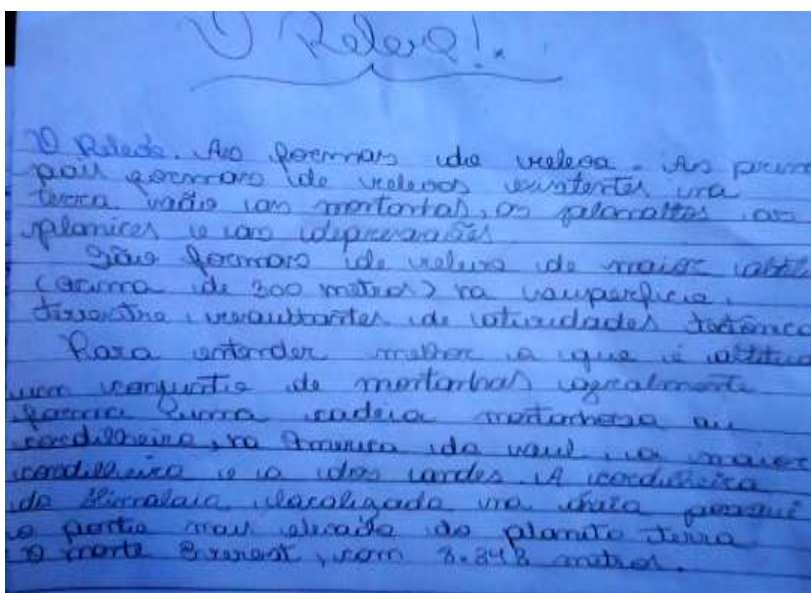 O Relevo!.
O Relevo. As formas de relevo. As princi
pais formas de relevos existentes na
terra são as montanhas, os planaltos as
planices e as depressões
São formas de relevo de maior altit
(acima de 300 metros) na superficie
terrestre, resultantes de atividades tectônica
Para entender melhor o que é altitu
um conjunto de montanhas geralmente
forma uma cadeia montanhosa ou
cordilheira, na America do sul, a maior
cordilheira e a dos andes. A cordilheira
do Himalaia, localizada na ásia possui
o ponto mais elevado do planeta terra
O monte Everest, com 8.848 metros.